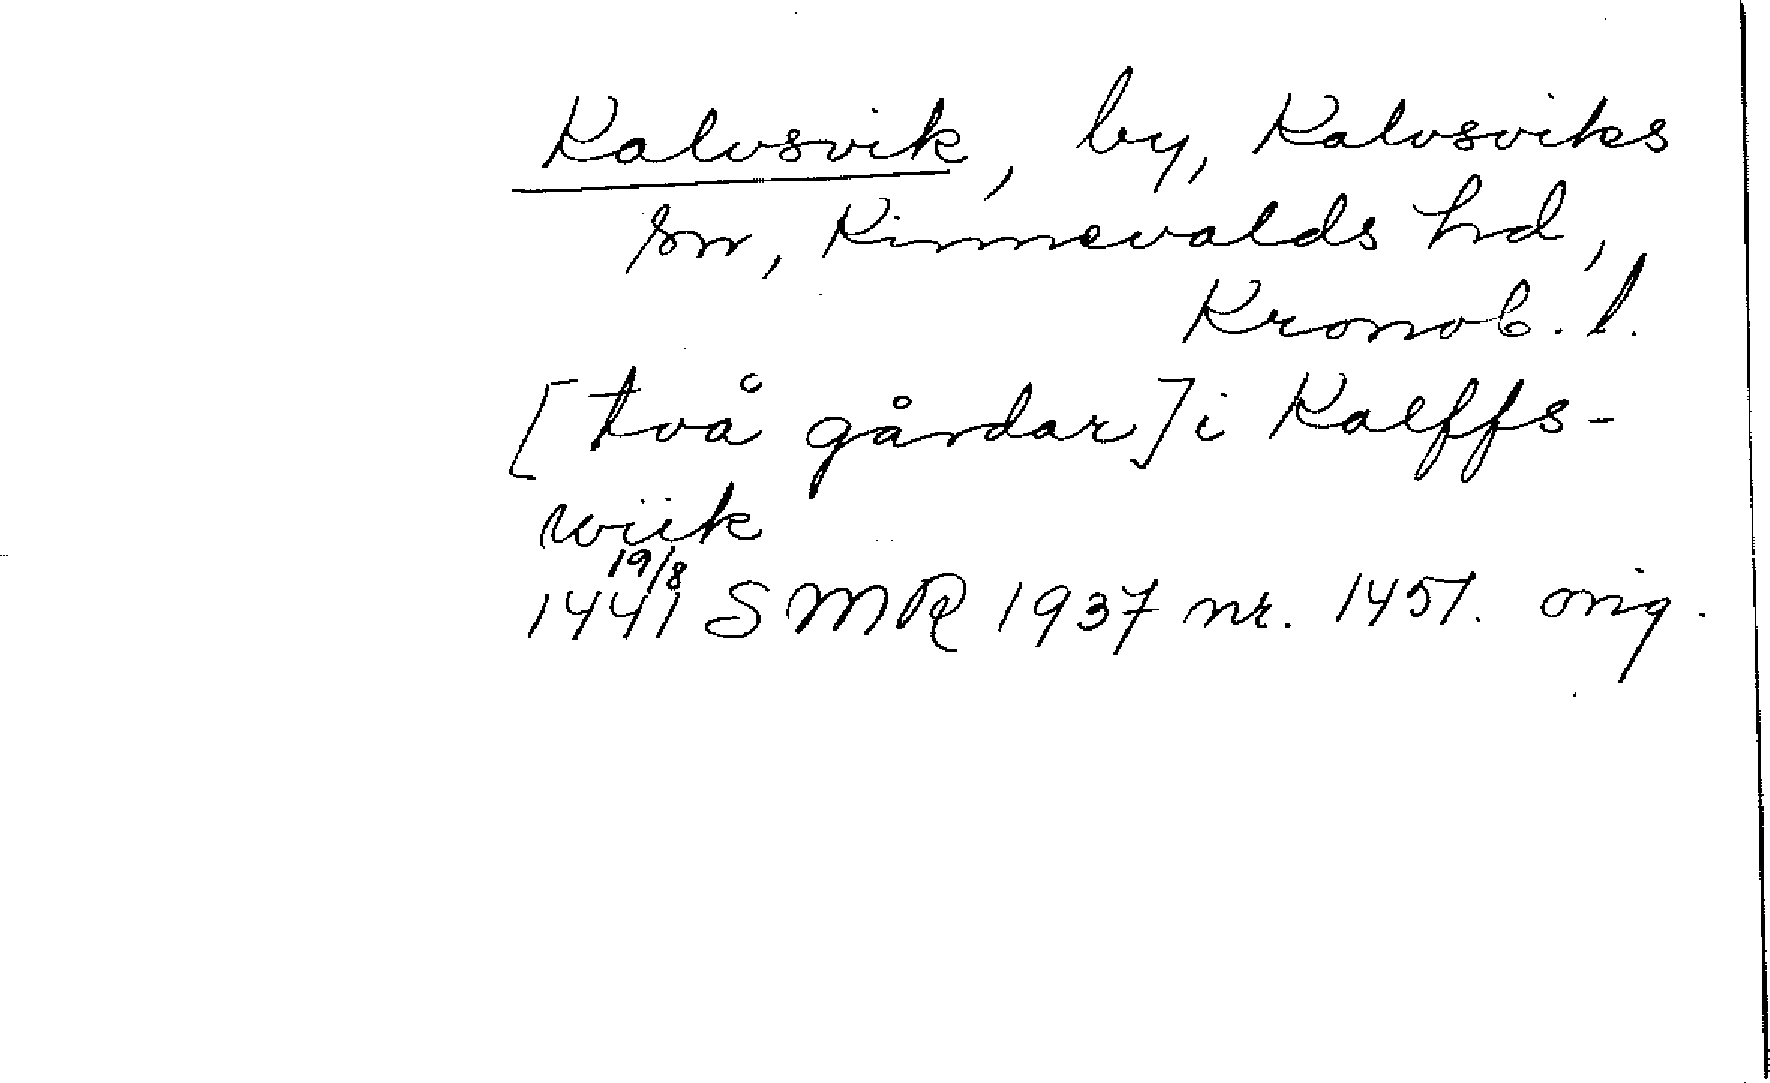 Kalvsvik, by, Kalvsviks
sn, Kinnevalds hd,
Kronob. l.
[två gårdar] i Kalffs-
wiik
19/8
1441 SMR 1937 nr. 1457. orig.